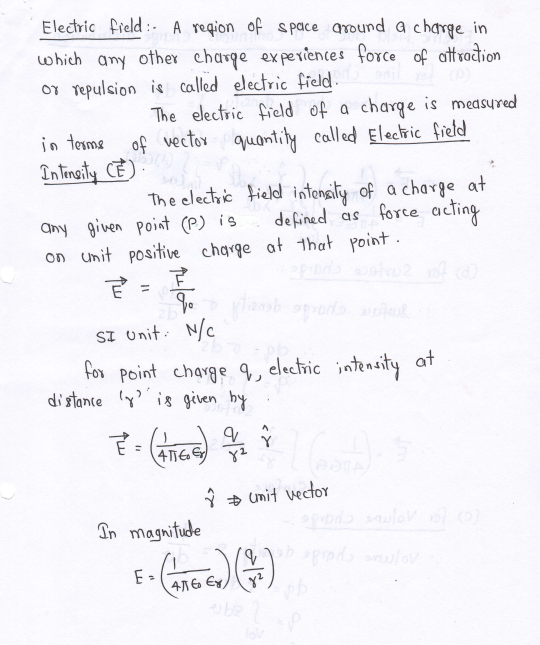 Electric field:- A region of space around a charge in
which any other charge experiences force of attraction
or repulsion is called electric field.
The electric field of a charge is measured
in terms of vector quantity called Electric field
Intensity (E⃗).
The electric field intensity of a charge at
any given point (P) is defined as force acting
on unit positive charge at that point.
E⃗ = F⃗/q₀
SI Unit: N/C
for point charge q, electric intensity at
distance 'r' is given by
E⃗ = (1/4πϵ₀ϵᵣ) q/r² r̂
r̂ ⇒ unit vector
In magnitude
E = (1/4πϵ₀ϵᵣ)(q/r²)